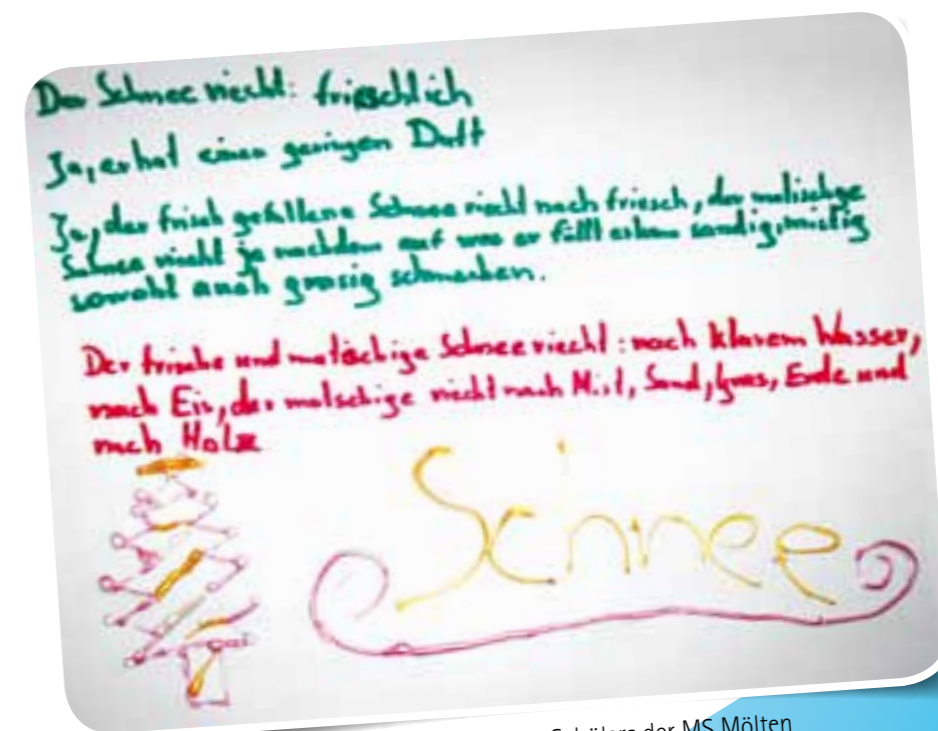 Der Schnee riecht: frieschlich
Ja, er hat einen geringen Duft
Ja, der frisch gefallene Schnee riecht nach friesch, der
Schnee riecht je nachdem auf was er fällt sandig, mistig
sowohl auch grasig schmecken.
Der frishe und matschige Schnee riecht: nach klarem Wasser,
nach Eis, der matschige riecht nach Mist, Sand, Gras, Erde und
nach Holz
Schnee
Schülers der MS Mölten